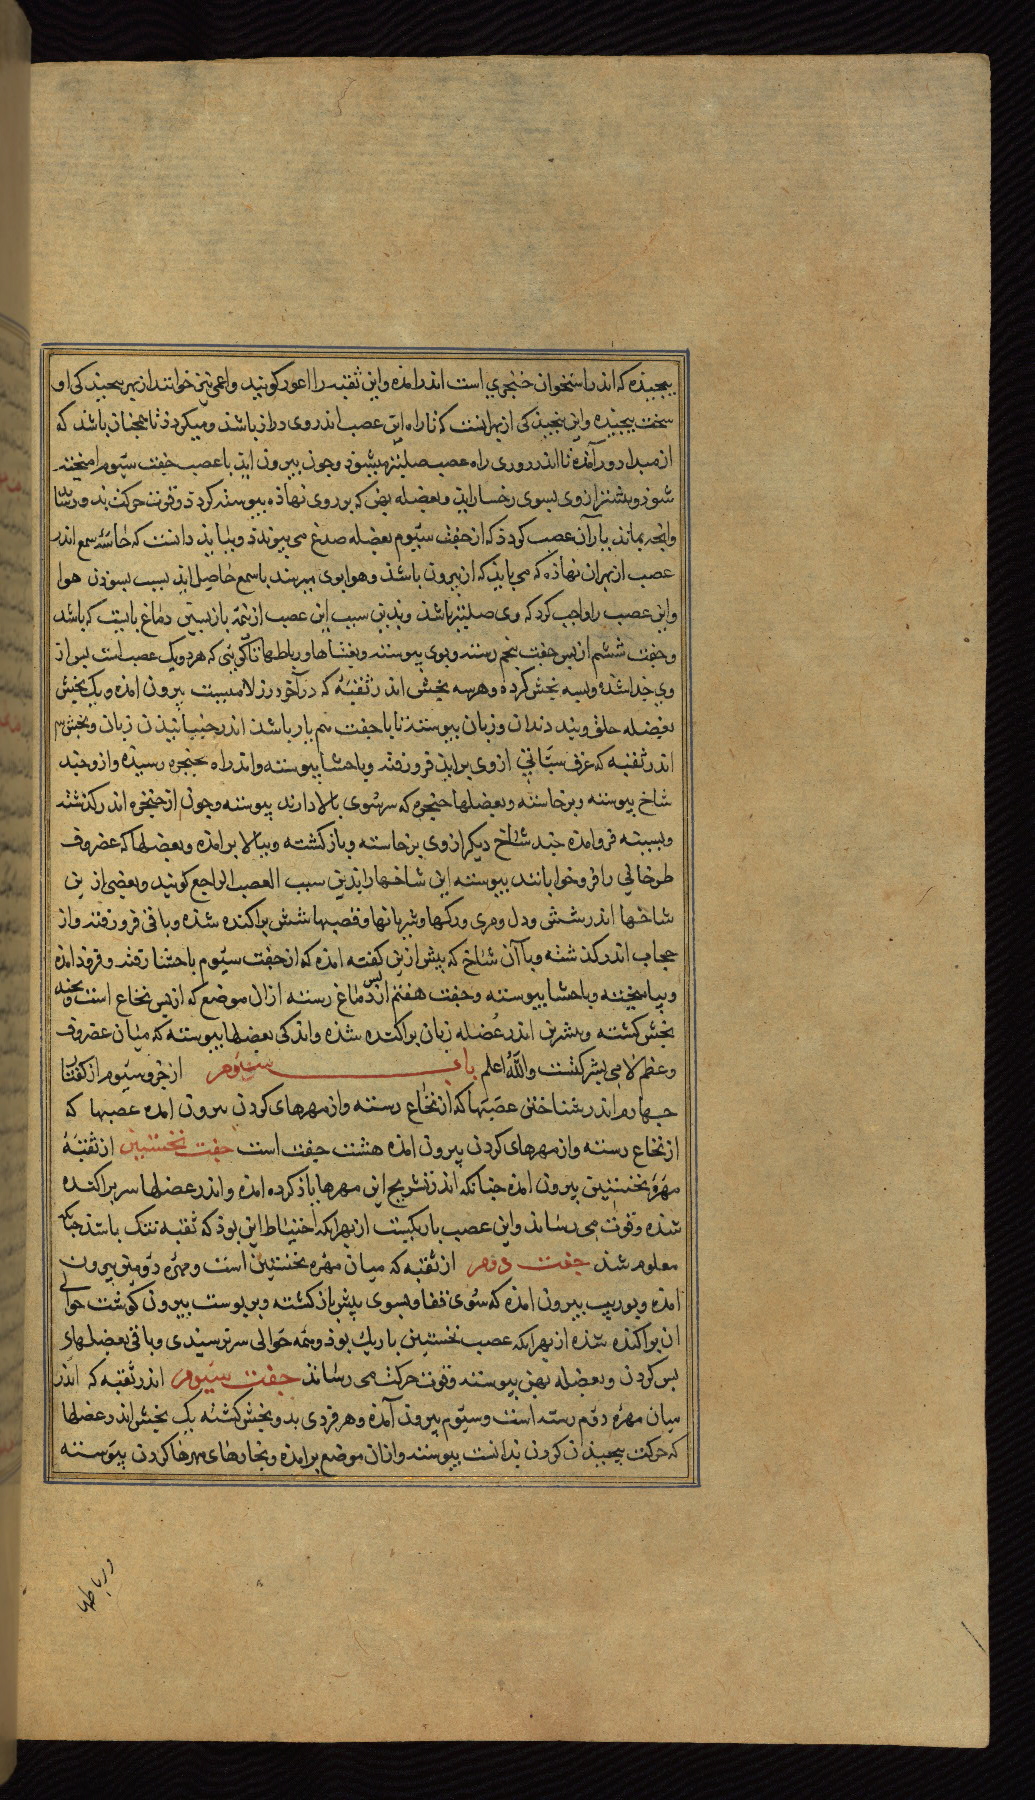 پیچیذه که اندر استخوان حنجری است اندر امذه واین ثقبه را اعور کویند واعمی نیز خوانند از بهر پیچیذکی او
سخت پیچیذه واین پیچیذکی از بهر انست که تا راه این عصب اندر وی دراز باشذ ومیکردذ تا همچنان باشذ که
از مبدا دور آمذه تا اندر روی راه عصب صلیتر میشوذ وجون بیرون ایذ با عصب جفت سیوم امیخته
شوذ وبیشتر از وی بسوی رخسار ایذ وبعضله پهن که بر روی نهاذه پیوسته کردد وقوت حرکت بذو رساند
وانچه بماند یار آن عصب کردذ که از جفت سیوم بعضله صدغ می پیوندد وبباید دانست که حاسّه سمع اندر
عصب از بهر ان نهاذه که می بایذ که از بیرون باشذ وهوا بوی میرسد تا سمع حاصل ایذ بسبب بسوذن هوا
واین عصب را واجب کرد که وی صلیتر باشذ وبذین سبب این عصب از نیمهٔ بازپسین دماغ بایست که باشد
وجفت ششم از پس جفت پنجم رسته وبوی پیوسته وبغشاها ورباطها تا کوئی که هر دو یک عصب است پس از
وی جذا شذه وبسه بخش کرده وهر سه بخش اندر ثقبهٔ که در آخر درز لامیست بیرون امذه ویک بخش
بعضله حلق وبیخ دندان وزبان پیوسته تا با جفت سیم یار باشد اندر جنبانیذن زبان وبخش سم
اندر ثقبه که عرف سبّاتی از وی برایذ فرو رفته وباحشا پیوسته واندر راه بحنجره رسیذه واز وچند
شاخ پیوسته وبرخاسته وبعضلها حنجره که سر سوی بالا دارند پیوسته وجون از حنجره اندر کذشته
وبسینه فرو امذه جند شاخ دیکر از وی برخاسته وباز کشته وببالا برامذه وبعضلها که غضروف
طرجهالی را فرو خوابانند پیوسته این شاخها را بذین سبب العصب الراجع کویند وبعضی از ین
شاخها اندر شش ودل ومری ورکها وشریانها وقصبها شش پراکنده شذه وباقی فرو رفته واز
حجاب اندر کذشته وبا آن شاخ که پیش ازین کفته امذه که از جفت سیوم باحشا رفته وفروذ امذه
وبیامیخته وباحشا پیوسته وجفت هفتم از پس دماغ رسته ازان موضع که از پس نخاع است وبچند
بخش کشته وبیشرین اندر عضله زبان پراکنده شذه واندکی بعضلها پیوسته که میان غضروف
وعظم لامی بشرکتست والله اعلم باب سیوم از جزو سیوم از کفتار
جهارم اندر شناختن عصبها که از نخاع رسته واز مهرهای کردن بیرون امذه عصبها که
از نخاع رسته واز مهرهای کردن بیرون امذه هشت جفت است جفت نخستین از ثقبهٔ
مهرهٔ نخستین بیرون امذه جنانکه اندر تشریح این مهرها یاذ کرده امذه واندر عضلها سر پراکنده
شذه وقوت می رساند واین عصب باریکیست از بهر انکه احتیاط این بوذ که ثقبه تنک باشذ جنانکه
معلوم شذ جفت دوم از ثقبه که میان مهره نخستین است ومهره دومین بیرون
امذه وبوریب بیرون امذه که سوی قفا وبسوی پیش باز کشته وبر پوست بیرون کوشت حوالی
ان پراکنده شذه از بهر انکه عصب نخستین باریک بوذ وبهمه حوالی سر نرسیذی وباقی بعضلهای
پس کردن وبعضله پهن پیوسته وقوت حرکت می رساند جفت سیوم اندر ثقبه که اندر
میان مهره دوم رسته است وسیوم بیرون آمذه وهر فردی بدو بخش کشته یک بخش اندر عضلها
که حرکت پیچیذن کردن بذانست پیوسته وازان موضع برامذه وبخارهای مهرها کردن پیوسته
ورباطها